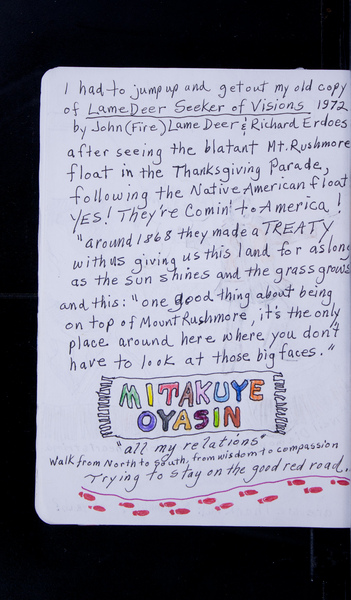 I had to jump up and get out my old copy
of Lame Deer Seeker of Visions 1972
by John (Fire) Lame Deer & Richard Erdoes
after seeing the blatant Mt. Rushmore
float in the Thanksgiving Parade,
following the Native American float
YES! They're Comin' to America!
"around 1868 they made a TREATY
with us giving us this land for as long
as the sun shines and the grass grows
and this: "one good thing about being
on top of Mount Rushmore, it's the only
place around here where you don't
have to look at those big faces."
MITAKUYE
OYASIN
"all my relations"
Walk from North to South, from wisdom to compassion
Trying to stay on the good red road.